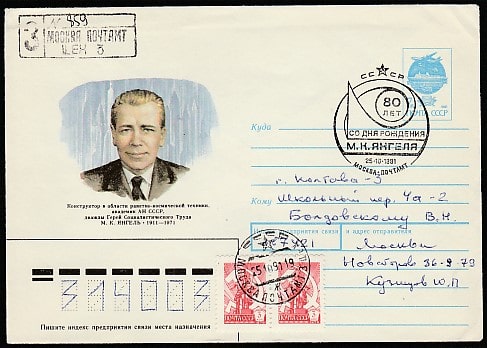 З № 859
МОСКВА ПОЧТАМТ
ЦЕХ 3
СССР
80 ЛЕТ
СО ДНЯ РОЖДЕНИЯ
М. К. ЯНГЕЛЯ
25-10-1991
МОСКВА, ПОЧТАМТ
ПОЧТА СССР
Конструктор в области ракетно-космической техники,
академик АН СССР,
дважды Герой Социалистического Труда
М. К. ЯНГЕЛЬ · 1911—1971
Куда
г. Полтава-3
Кому Школьный пер. 4а-2
Болдовскому В. Н.
Индекс предприятия связи и адрес отправителя
Москва
36-2-79
Кузнецов Ю. П
314003
Пишите индекс предприятия связи места назначения
СССР
МОСКВА ПОЧТАМТ
ПОЧТА СССР
ПОЧТА СССР